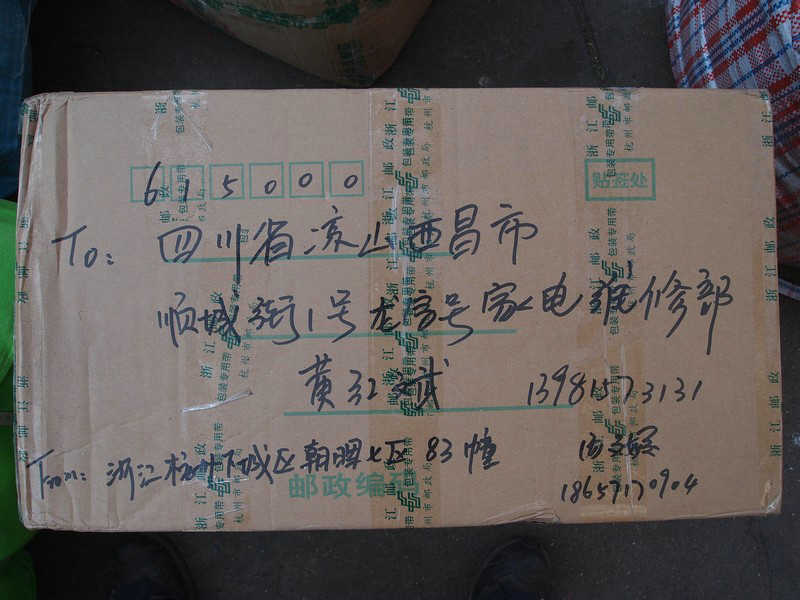 615000
贴签处
To: 四川省凉山西昌市
顺城街1号龙富号家电维修部
黄红斌 13981573131
From: 浙江杭州下城区朝晖七区 83幢
邮政编码
18657170904
浙江邮政
包装专用带
杭州市邮政局